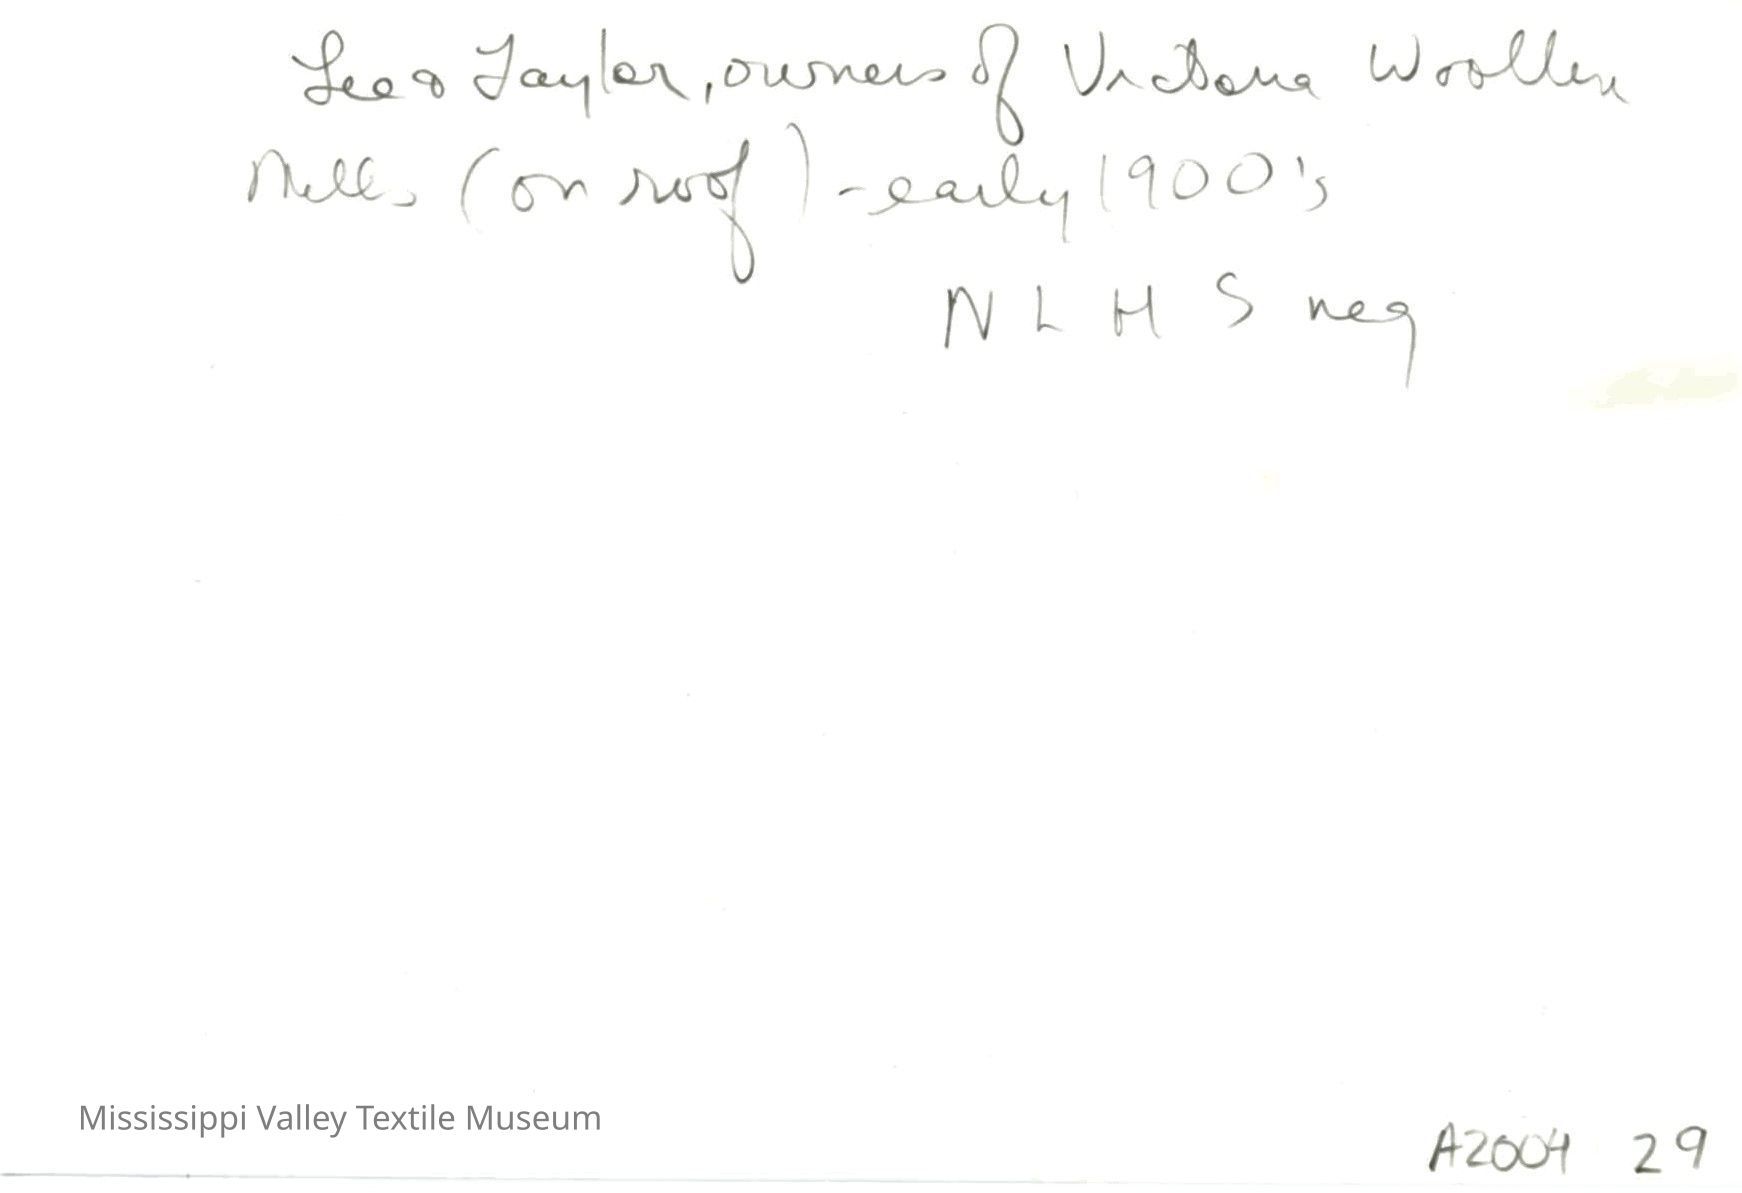 Lee & Taylor, owners of Victoria Woollen
Mills (on roof) - early 1900's
N L H S neg
Mississippi Valley Textile Museum
A2004 29